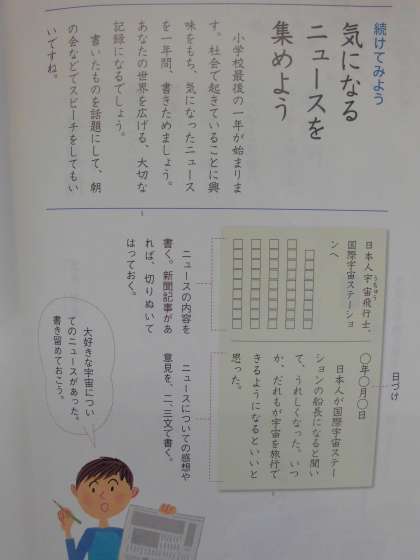 続けてみよう
気になる
ニュースを
集めよう
小学校最後の一年が始まりま
す。社会で起きていることに興
味をもち、気になったニュース
を一年間、書きためましょう。
あなたの世界を広げる、大切な
記録になるでしょう。
書いたものを話題にして、朝
の会などでスピーチをしてもい
いですね。
日づけ
〇年〇月〇日
日本人宇宙飛行士、
うちゅう
国際宇宙ステーショ
ンへ
日本人が国際宇宙ステー
ションの船長になると聞い
て、うれしくなった。いつ
か、だれもが宇宙を旅行で
きるようになるといいと
思った。
ニュースの内容を
書く。新聞記事があ
れば、切りぬいて
はっておく。
ニュースについての感想や
意見を、二、三文で書く。
大好きな宇宙につい
てのニュースがあった。
書き留めておこう。